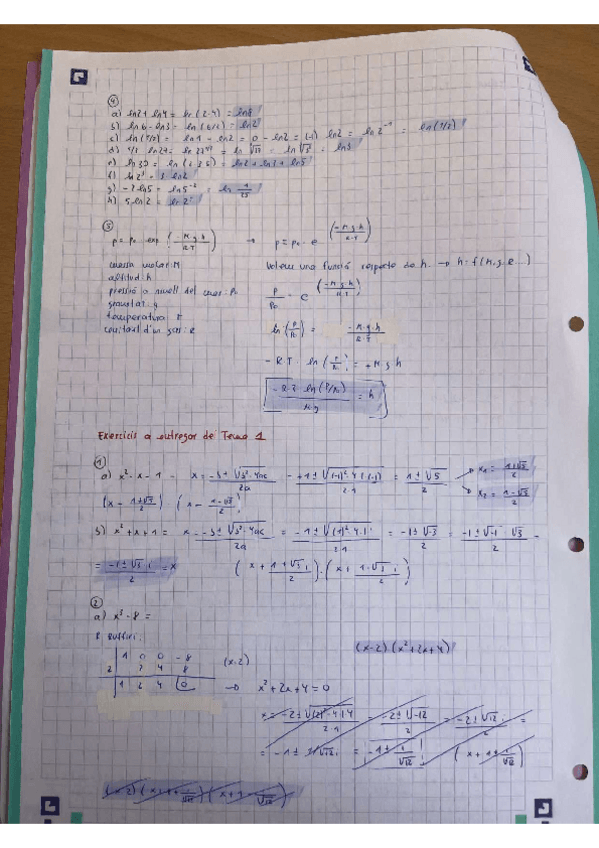 4
a) ln2 + ln4 = ln(2·4) = ln8
b) ln6 - ln3 = ln(6/3) = ln2
c) ln(1/2) = ln1 - ln2 = 0 - ln2 = (-1) ln2 = ln2⁻¹ = ln(1/2)
ln3
e) ln30 = ln(2·3·5) = ln2 + ln3 + ln5
f) ln2³ = 3 ln2
g) -2 ln5 = ln5⁻² = ln 1/25
h) 5 ln2 = ln2⁵
5
p = p₀ · exp(-M·g·h / R·T) → p = p₀ · e^(-M·g·h / R·T)
massa molar: M
altitud: h
pressió a nivell del mar: P₀
gravetat: g
temperatura: T
constant d'un gas: R
Volem una funció respecte de h. → h = f(M, g, R )
P/P₀ = e^(-M·g·h / R·T)
ln(P/P₀) = -M·g·h / R·T
- R·T · ln(P/P₀) = +M g h
-R·T ln(P/P₀) / M·g = h
Exercicis a entregar de Tema 1
1
a) x² - x - 1 = x = -b ± √b²-4ac / 2a = +1 ± √(-1)²-4·1·(-1) / 2·1 = 1 ± √5 / 2
x₁ = 1+√5 / 2
x₂ = 1-√5 / 2
(x - 1+√5 / 2) · (x - 1-√5 / 2)
b) x² + x + 1 = x = -b ± √b²-4ac / 2a = -1 ± √(1)²-4·1·1 / 2·1 = -1 ± √-3 / 2 = -1 ± √-1 · √3 / 2 =
= -1 ± √3 i / 2 = x (x + 1+√3 i / 2) · (x + 1-√3 i / 2)
2
a) x³ - 8 =
R. Ruffini:
(x-2)(x²+2x+4)
1 0 0 -8
2 2 4 8 (x-2)
1 2 4 0 → x² + 2x + 4 = 0
x = -2 ± √(2)²-4·1·4 / 2·1 = -2 ± √-12 / 2 = -2 ± √12 i / 2 =